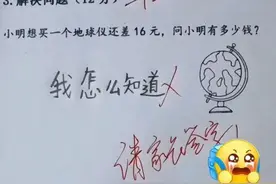 3.解决问题（12分）
小明想买一个地球仪还差16元，问小明有多少钱？
我怎么知道
请家长签字